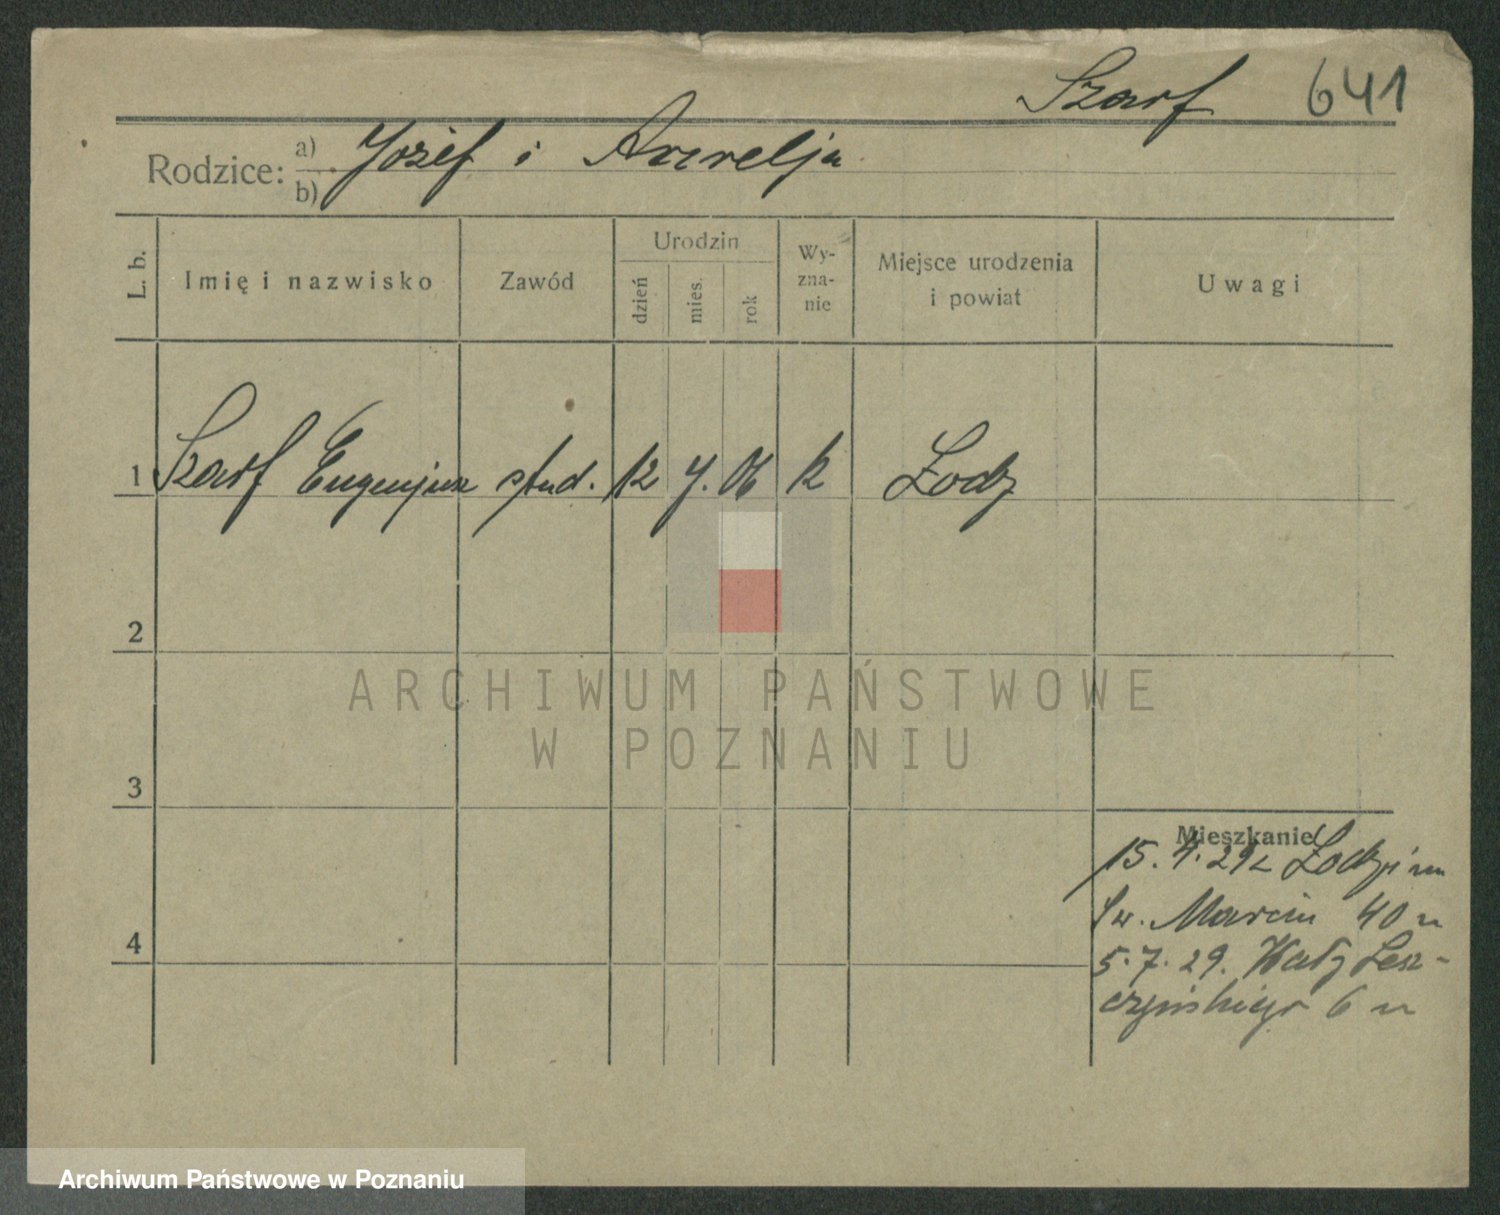 Szarf 641
Rodzice: a) Józef i Aurelja
b)
L. b.
Imię i nazwisko
Zawód
Urodzin
dzień
mies.
rok
Wy-
zna-
nie
Miejsce urodzenia
i powiat
Uwagi
1 Szarf Eugenjusz stud. 12 7. 06 k Łodz
2
ARCHIWUM PAŃSTWOWE
W POZNANIU
3
4
Mieszkanie
15. 4. 29 z Łodzi
Św. Marcin 40
5. 7. 29. Wały Lesz-
czyńskiego 6
Archiwum Państwowe w Poznaniu